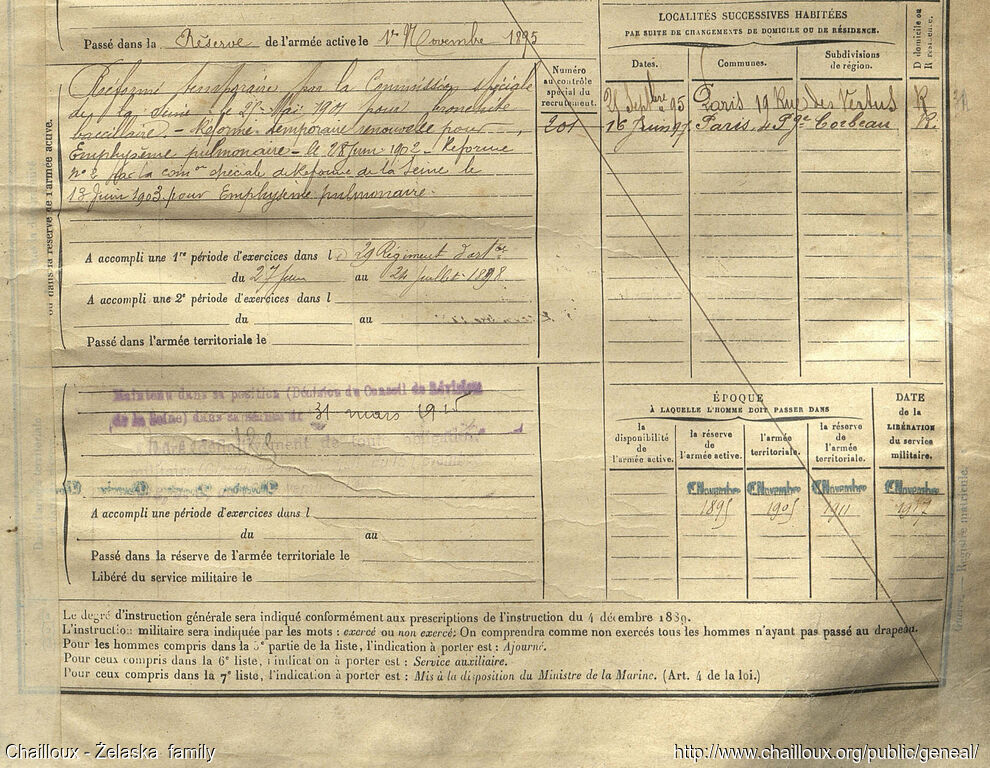 Passé dans la Réserve de l'armée active le 1er Novembre 1895
Réformé temporaire par la Commission spéciale
de la Seine le 28 Mai 1901 pour bronchite
bacillaire – Réforme temporaire renouvelée pour
Emphysème pulmonaire – le 28 Juin 1902 – Réforme
n° 2 par la comon spéciale de Réforme de la Seine le
13 Juin 1903 pour Emphysème pulmonaire.
A accompli une 1re période d'exercices dans l 29 Régiment d'artie
du 27 Juin au 24 Juillet 1898
A accompli une 2e période d'exercices dans l
du au
Passé dans l'armée territoriale le
ou dans la réserve de l'armée active.
Numéro
au contrôle
spécial du
recrutement.
201
LOCALITÉS SUCCESSIVES HABITÉES
PAR SUITE DE CHANGEMENTS DE DOMICILE OU DE RÉSIDENCE.
Dates. Communes. Subdivisions
de région.
D domicile ou
R résidence.
21 Septbre 95 Paris 19 Rue des Vertus R
16 Juin 97 Paris, 4 Pge Corbeau R.
Maintenu dans sa position (Décision du Conseil de Révision
de la Seine) dans sa séance du 31 mars 1915
A accompli une période d'exercices dans l
du au
Passé dans la réserve de l'armée territoriale le
Libéré du service militaire le
ÉPOQUE
À LAQUELLE L'HOMME DOIT PASSER DANS
la
disponibilité
de
l'armée active.
la réserve
de
l'armée active.
l'armée
territoriale.
la réserve
de
l'armée
territoriale.
DATE
de la
LIBÉRATION
du service
militaire.
1er Novembre 1er Novembre 1er Novembre 1er Novembre
1895 1905 1911
Le degré d'instruction générale sera indiqué conformément aux prescriptions de l'instruction du 4 décembre 1889.
L'instruction militaire sera indiquée par les mots : exercé ou non exercé; On comprendra comme non exercés tous les hommes n'ayant pas passé au drapeau.
Pour les hommes compris dans la 5e partie de la liste, l'indication à porter est : Ajourné.
Pour ceux compris dans la 6e liste, l'indication à porter est : Service auxiliaire.
Pour ceux compris dans la 7e liste, l'indication à porter est : Mis à la disposition du Ministre de la Marine. (Art. 4 de la loi.)
Chailloux - Želaska family http://www.chailloux.org/public/geneal/